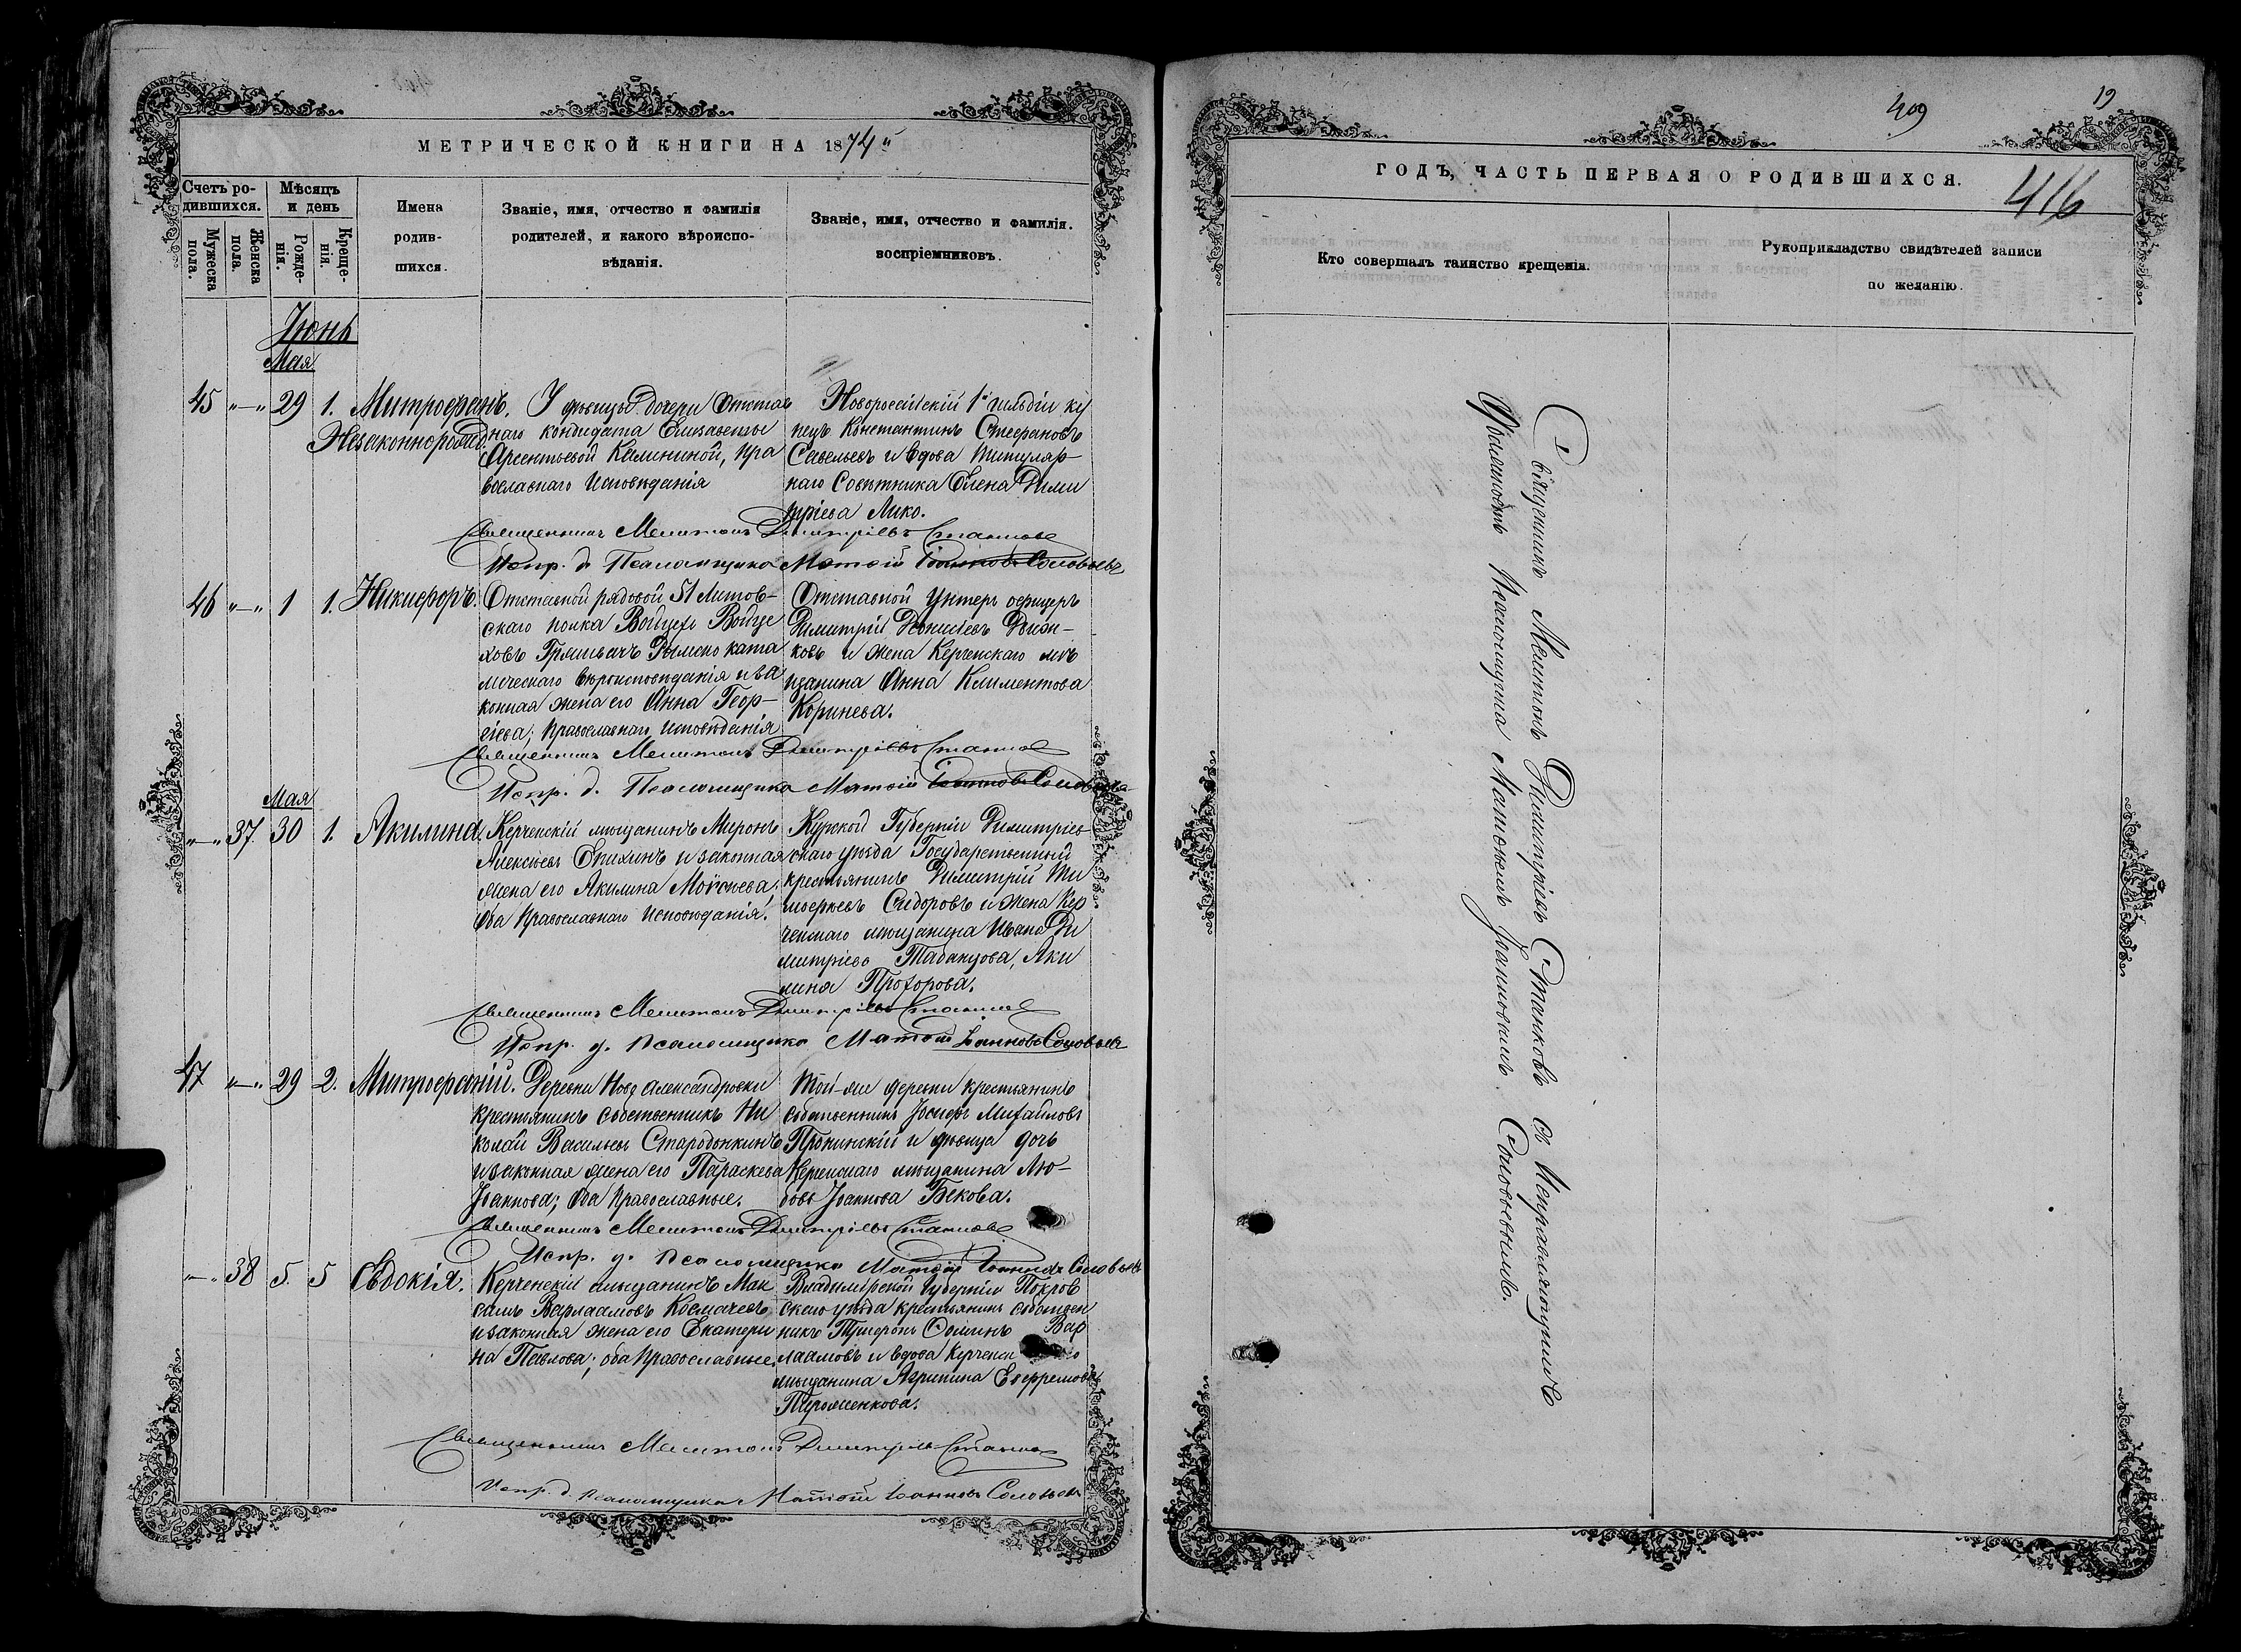 МЕТРИЧЕСКОЙ КНИГИ НА 1874й
Счетъ ро-
дившихся.
Мужеска
пола.
Женска
пола.
Мѣсяцъ
и день
Рожде-
нія.
Креще-
нія.
Имена
родив-
шихся.
Званіе, имя, отчество и фамилія
родителей, и какого вѣроиспо-
вѣданія.
Званіе, имя, отчество и фамилія.
воспріемниковъ.
Іюнь
Мая
45 „—„ 29 1. Митрофанъ.
Незаконнорожд.
У дѣвицы дочери Отстав
наго кондидата Елизаветы
Арсентьевой Калининой, пра
вославнаго Исповѣданія
Новороссійскій 1й гильдіи ку
пецъ Константинъ Стефановъ
Савельевъ и вдова титуляр-
наго Совѣтника Елена Дими
тріева Лико.
Священникъ Мелитонъ Димитріевъ Станковъ
Испр. д. Псаломщика Матѳій Іоанновъ Соловьевъ
46 „—„ 1 1. Никифоръ.
Отставной рядовой 51 Литов-
скаго полка Войцехъ Войце
ховъ Римско ката
лическаго вѣроисповѣданія и за
конная жена его Анна Геор-
гіева; православнаго исповѣданія
Отставной унтеръ офицеръ
Димитрій Діонисіевъ
ковъ и жена Керченскаго мѣ
щанина Анна Климентова
Коринева.
Священникъ Мелитонъ Димитріевъ Станковъ
Испр. д. Псаломщика Матѳій Іоанновъ Соловьевъ
Мая
„—„ 37. 30 1. Акилина.
Керченскій мѣщанинъ Миронъ
Алексѣевъ Епихинъ и законная
жена его Акилина Моѵсеева;
Оба Православнаго Исповѣданія.
Курской Губерніи Димитріев
скаго уѣзда Государственный
крестьянинъ Димитрій Ти
мофеевъ Сидоровъ и жена Кер
ченскаго мѣщанина Ивана Ди
митріева Табанцова, Аки
лина Прохорова.
Священникъ Мелитонъ Димитріевъ Станковъ
Испр. д. Псаломщика Матѳій Іоанновъ Соловьевъ
47 „—„ 29 2. Митрофаній.
Деревни Ново Александровки
крестьянинъ собственникъ Ни
колай Васильевъ Стародонкинъ
и законная жена его Параскева
Іоаннова; Оба православные.
Той-же деревни крестьянинъ
собственникъ Іосифъ Михайловъ
Пронинскій и дѣвица дочь
Керченскаго мѣщанина Лю-
бовь Іоаннова Бекова.
Священникъ Мелитонъ Димитріевъ Станковъ
Испр. д. Псаломщика Матѳій Іоанновъ Соловьевъ
„—„ 38 5. 5 Евдокія.
Керченскій мѣщанинъ Мак
симъ Варлаамовъ Космачевъ
и законная жена его Екатери
на Павлова; оба православные.
Владимірской губерніи Покров
скаго уѣзда крестьянинъ собствен
никъ Ѳоминъ Вар
лаамовъ и вдова Керченск о
мѣщанина Агрипина Евфремова
Пироженкова.
Священникъ Мелитонъ Димитріевъ Станковъ
Испр. д. псаломщика Матѳій Іоанновъ Соловьевъ
409
19
ГОДЪ, ЧАСТЬ ПЕРВАЯ О РОДИВШИХСЯ.
416
Кто совершалъ таинство крещенія.
Рукоприкладство свидѣтелей записи
по желанію.
Священникъ Мелитонъ Димитріевъ Станковъ съ Исправляющимъ
Должность Псаломщика Матѳеемъ Іоанновымъ Соловьевымъ.